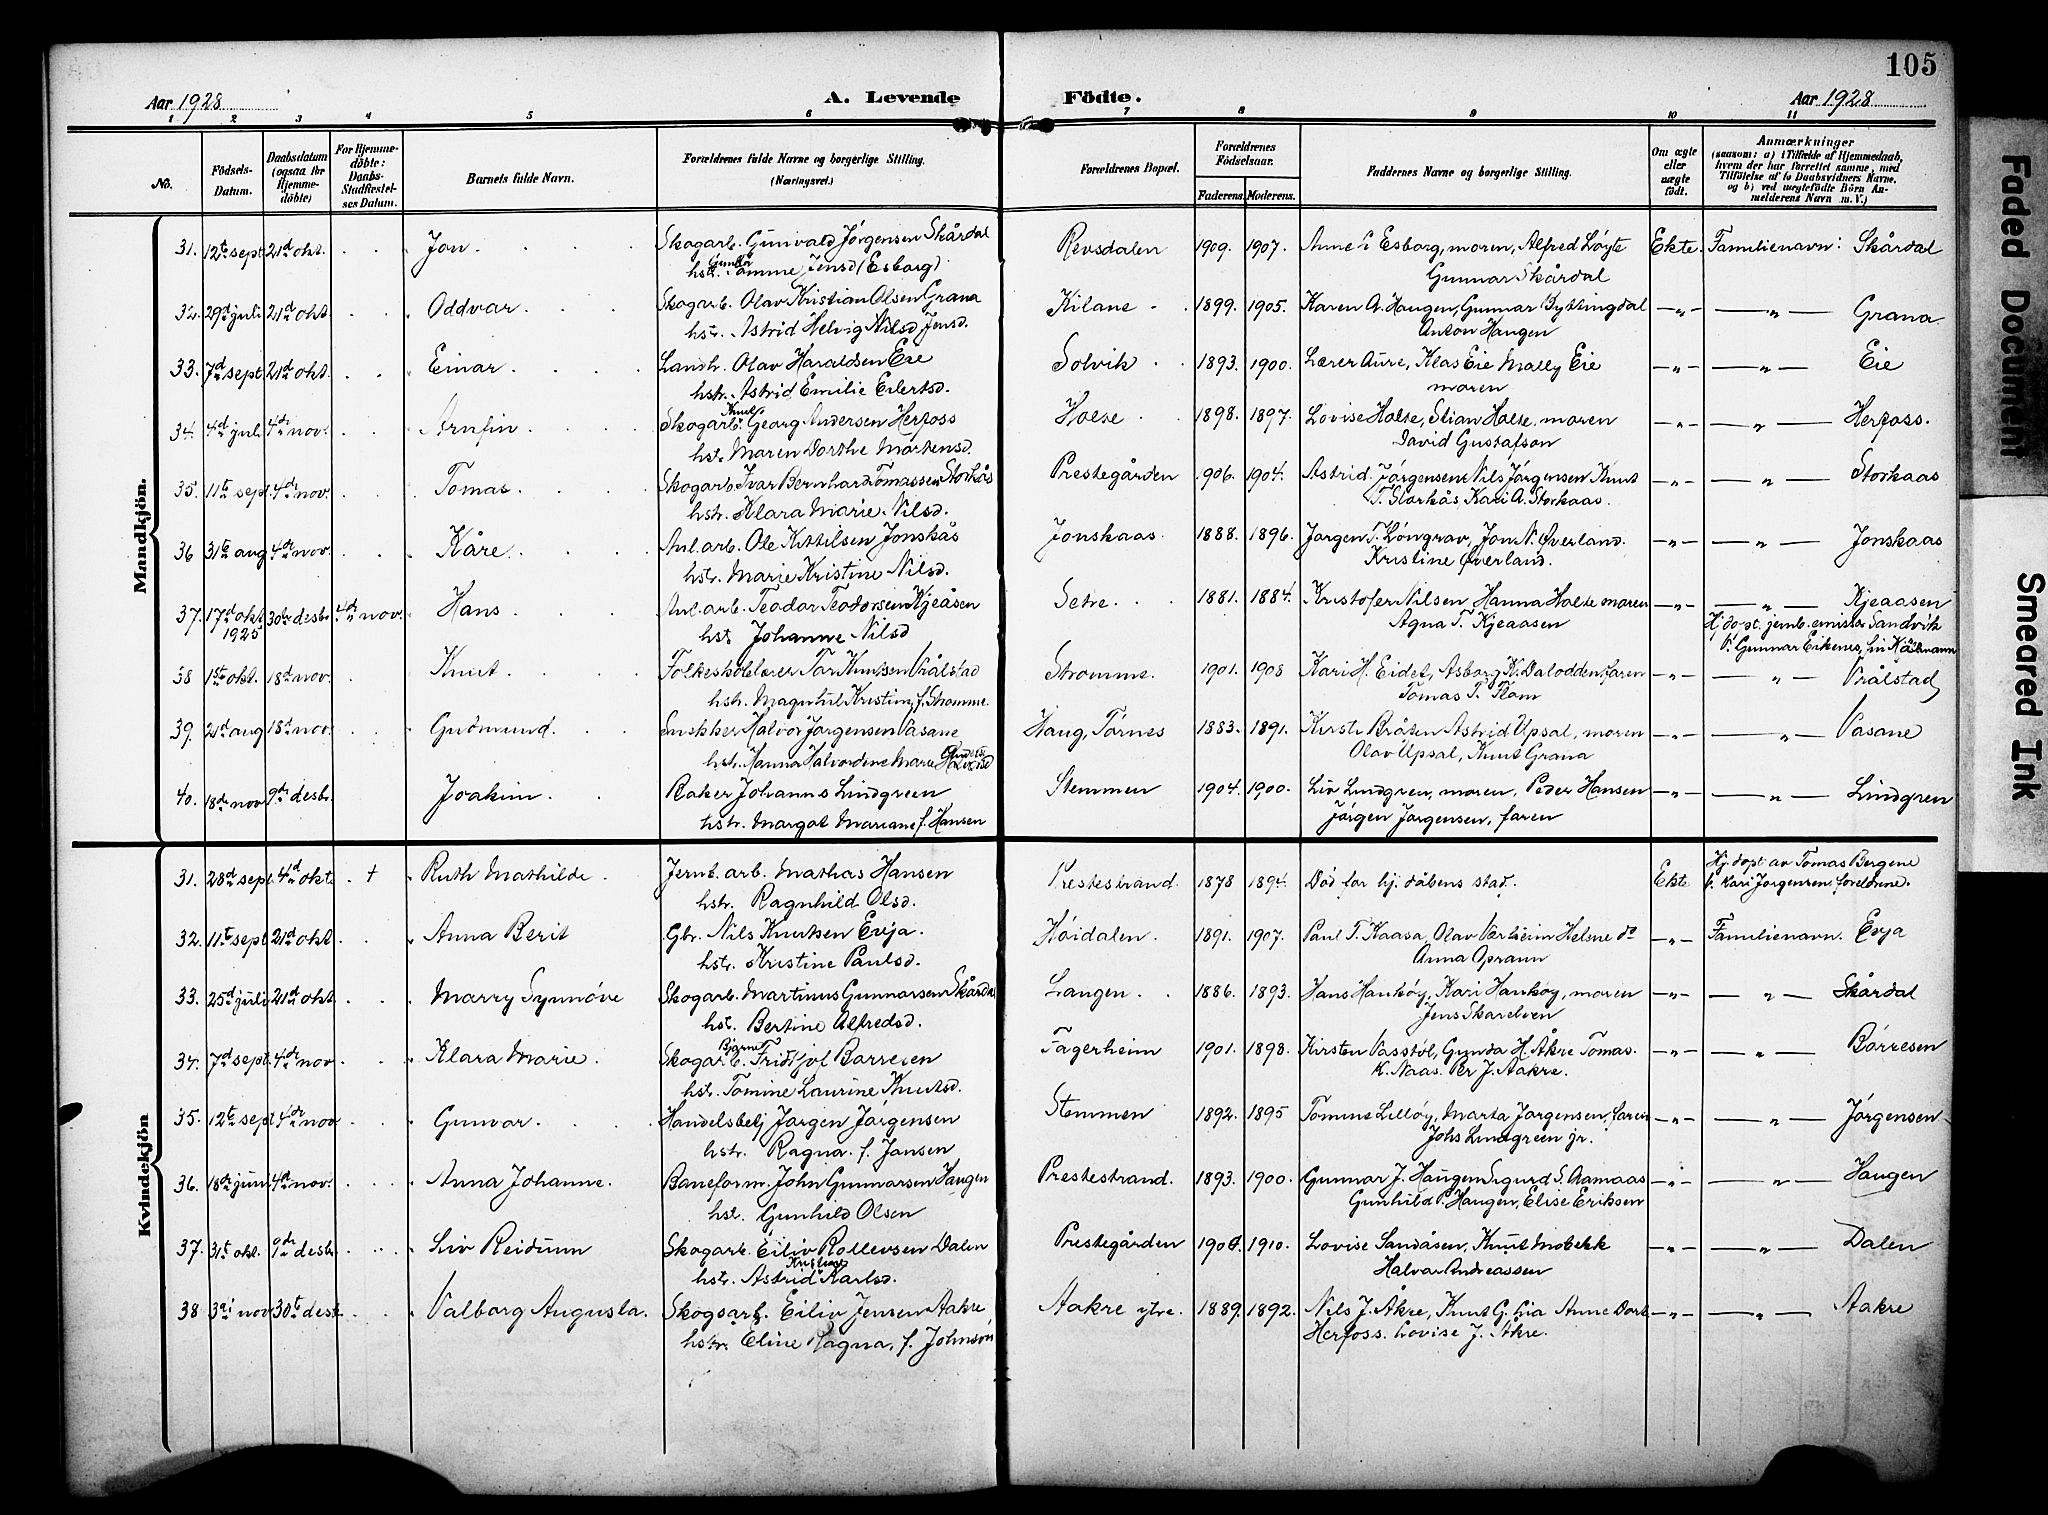 105
Aar 1928
A. Levende
Födte.
Aar 1928
1 2 3 4 5 6 7 8 9 10 11
No.
Födsels-Datum.
Daabsdatum (ogsaa for Hjemme-döbte)
For Hjemme-döbte: Daabs-Stadfæstel-ses Datum.
Barnets fulde Navn.
Forældrenes fulde Navne og borgerlige Stilling. (Næringsvei.)
Forældrenes Bopæl.
Forældrenes Födselsaar.
Faderens. Moderens.
Faddernes Navne og borgerlige Stilling.
Om ægte eller uægte födt.
Anmærkninger
(saasom: a) i Tilfælde af Hjemmedaab, hvem der har forrettet samme, med Tilföielse af to Daabsvidners Navne, og b) ved uægtefödte Börn Anmelderens Navn m. V.)
Mandkjön.
31. 12te sept 21de okt. Jon. Skogarb. Gunvald Jørgensen Skårdal Revsdalen 1909. 1907. Anne Esborg, moren, Alfred Løyte Ekte. Familienavn: Skårdal
hstr. Tomme Jensd (Esborg) Gunnar Skårdal
32. 29de juli 21de okt Oddvar. Skogarb. Olav Kristian Olsen Grana Kilane 1899. 1905. Karen A. Haugen, Gunnar Byttingdal -"- -"- Grana
hstr. Astrid Helvig Nilsd Jensd. Anton Haugen
33. 7de sept 21de okt. Einar. Landh. Olav Haraldsen Eie Solvik 1893. 1900. Lærer Aure, Klas Eie Mally Eie -"- -"- Eie
hstr. Astrid Emilie Eilertsd. moren
34. 4de juli 4de nov. Arnfin. Skogarb. Knut Georg Andersen Herfoss Holte 1898. 1897. Lovise Holte, Stian Holte, moren -"- -"- Herfoss.
hstr. Maren Dorthe Martensd. David Gustafson
35. 11te sept 4de nov. Tomas. Skogarb. Ivar Bernhard Tomassen Storkås Prestegården 1906. 1904. Astrid Jørgensen Nils Jørgensen Knut -"- -"- Storkaas
hstr. Klara Marie Nilsd. T. Storkås Kari A. Storkaas.
36 31te aug 4de nov. Kåre. Anl. arb. Ole Kittilsen Jonskås Jonskaas. 1888. 1896. Jørgen T. Løngrav, Jon N. Øverland. -"- -"- Jonskaas
hstr. Marie Kristine Nilsd. Kristine Øverland.
37. 17de okt 1925 30de desbr. 4de nov. Hans. Anl. arb. Teodor Teodorsen Kjeåsen Setre. 1881. 1884. Kristofer Nilsen, Hanna Holte moren -"- -"- Kjeaasen
hstr Johanne Nilsd Agna T. Kjeaasen Hj.døpt. jernb. emisær Sandvik
38 1ste okt. 18de nov. Knut. Folkeskolelærer Tor Knutsen Vrålstad Strømme. 1901. 1908 Kari H. Eidet, Asborg K. Dalodden, faren -"- -"- Vrålstad
hstr. Magnhild Kristine f. Strømme. Tomas T. Flom
39. 21de aug 18de nov. Gudmund. Snekker Halvor Jørgensen Vasane Haug, Tørnes 1883. 1891. Kirsti Bråten Astrid Upsal, moren -"- -"- Vasane
hstr. Hanna Halvordine Marie Olav Upsal, Knut Grana
40. 18de nov 9de desbr. Joakim. Baker Johannes Lindgreen Stemmen 1904. 1900. Liv Lindgren, moren, Peder Hansen -"- -"- Lindgren
hstr. Margot Mariane f. Hansen Jørgen Jørgensen, faren
Kvindekjön
31. 28de sept. 4de okt. + Ruth Mathilde. Jernb. arb. Mathias Hansen Prestestrand. 1878 1894. Død før hj. dåbens stad. Ekte Hj. døpt av Tomas Bergene
hstr. Ragnhild Olsd. v. Kari Jørgensen foreldrene.
32. 11te sept 21de okt Anna Berit Gbr. Nils Knutsen Evja. Høidalen. 1891. 1907. Paul T. Kaasa, Olav Værheim Helene do -"- Familienavn. Evja
hstr. Kristine Paulsd. Anna Oprann
33. 25de juli 21de okt Marry Synnøve Skogarb. Martinus Gunnarsen Skårdal Langen. 1886. 1893. Hans Haukøy, Kari Haukøy, moren -"- -"- Skårdal
hstr. Bertine Alfredsd. Jens Skarelven
34. 7de sept. 4de nov Klara Marie. Skogarb. Bjarne Fridtjof Børresen Fagerheim 1901. 1898. Kirsten Vasstøl, Gunda H. Åkre Tomas. -"- -"- Børresen
hstr. Tomine Laurine Knutsd. K. Naas. Per J. Aakre.
35. 12te sept 4de nov Gunvor. Handelsbetj Jørgen Jørgensen Stemmen 1892. 1895 Tomine Lilløy, Marta Jørgensen, faren -"- -"- Jørgensen
hstr. Ragna. f. Jansen Johs Lindgreen jr.
36. 18de juni 4de nov. Anna Johanne. Baneform. John Gunnarsen Haugen Prestestrand. 1893. 1900. Gunnar J. Haugen Sigurd S. Aamaas -"- -"- Haugen
hst. Gunhild Olsen Gunhild P. Haugen, Elise Eriksen
37. 31te okt. 9de desbr. Liv Reidunn Skogarb. Eiliv Rollevsen Dalen Prestegården 1906. 1910. Lovise Sandåsen, Knut Mobekk -"- -"- Dalen
hstr. Astrid Kristine Karlsd. Halvor Andreassen
38 3di nov 30te desb. Valborg Augusta. Skogsarb. Eiliv Jensen Aakre Aakre ytre. 1889. 1892. Nils J. Åkre, Knut G. Lia Anne Dort -"- -"- Aakre
hstr. Eline Ragna, f. Johnson Herfoss. Lovise J. Åkre.
Faded Document
Smeared Ink